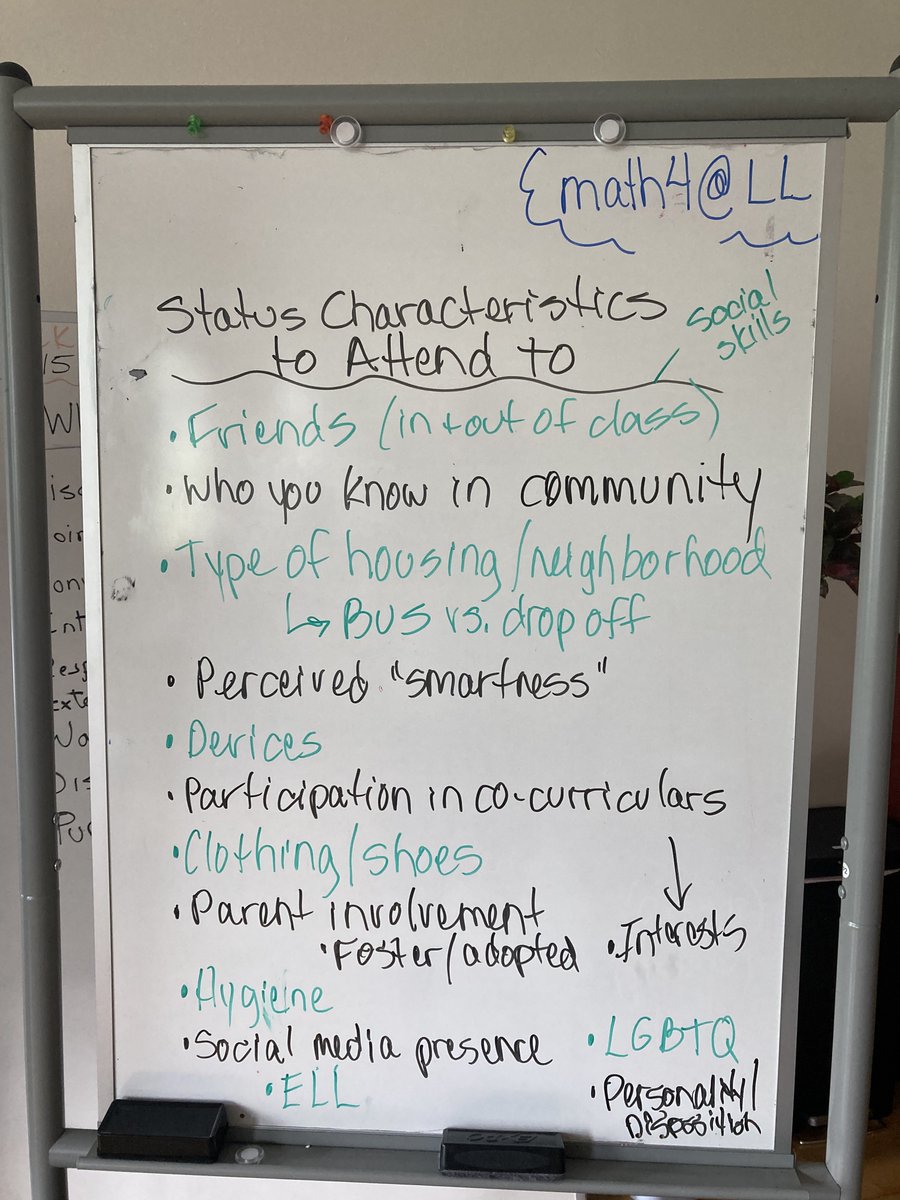 {math4@LL
Status Characteristics
to Attend to
social
skills
• Friends (in + out of class)
• Who you know in community
• Type of housing/neighborhood
↳ Bus vs. drop off
• Perceived "smartness"
• Devices
• Participation in co-curriculars
• Clothing/shoes
• Parent involvement
• Foster/adopted
• Interests
• Hygiene
• Social media presence
• LGBTQ
• ELL
• Personality/
Disposition
15